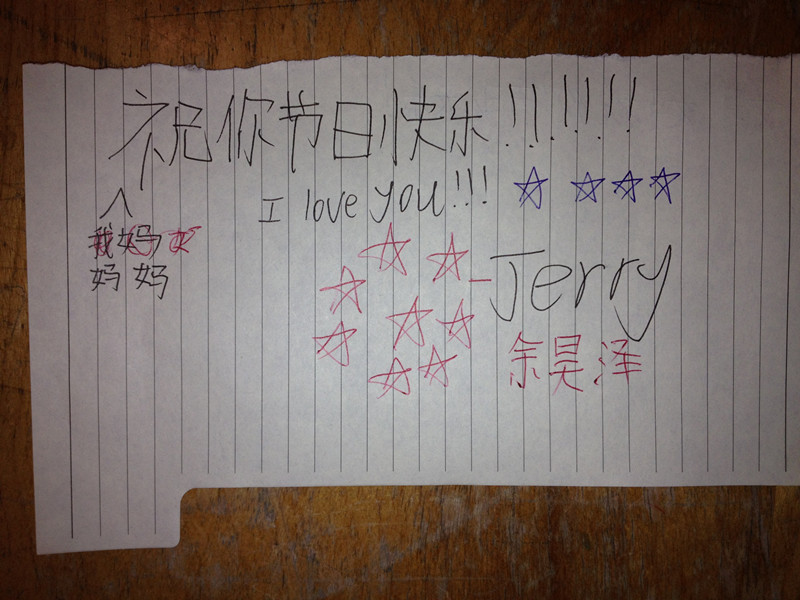 祝你节日快乐!!!!!!!
I love you!!!
妈妈
-Jerry
余昊泽